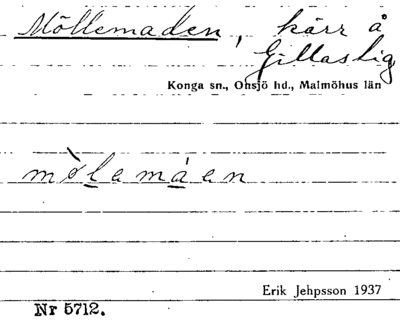 Möllemaden, kärr å
Gillastig
Konga sn., Onsjö hd., Malmöhus län
mòlemáen
Erik Jehpsson 1937
Nr 5712.